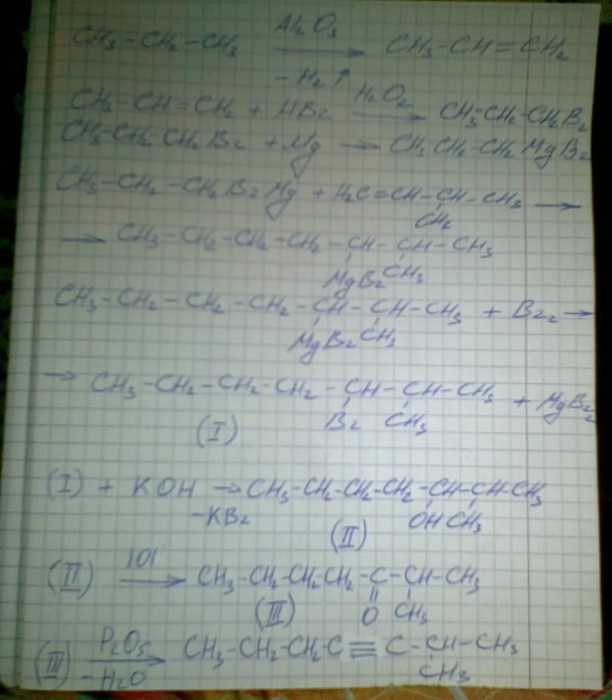 CH₃-CH₂-CH₃ Al₂O₃ -H₂↑ → CH₃-CH=CH₂
CH₃-CH=CH₂ + HBr H₂O₂ → CH₃-CH₂-CH₂Br
CH₃-CH₂-CH₂Br + Mg → CH₃CH₂-CH₂MgBr
CH₃-CH₂-CH₂BrMg + H₂C=CH-CH-CH₃ →
CH₃
→ CH₃-CH₂-CH₂-CH₂-CH-CH-CH₃
MgBr CH₃
CH₃-CH₂-CH₂-CH₂-CH-CH-CH₃ + Br₂ →
MgBr CH₃
→ CH₃-CH₂-CH₂-CH₂-CH-CH-CH₃ + MgBr₂
(I) Br CH₃
(I) + KOH → CH₃-CH₂-CH₂-CH₂-CH-CH-CH₃
-KBr (II) OH CH₃
(II) |O| → CH₃-CH₂-CH₂-CH₂-C-CH-CH₃
(III) O CH₃
(III) P₂O₅ -H₂O → CH₃-CH₂-CH₂-C≡C-CH-CH₃
CH₃